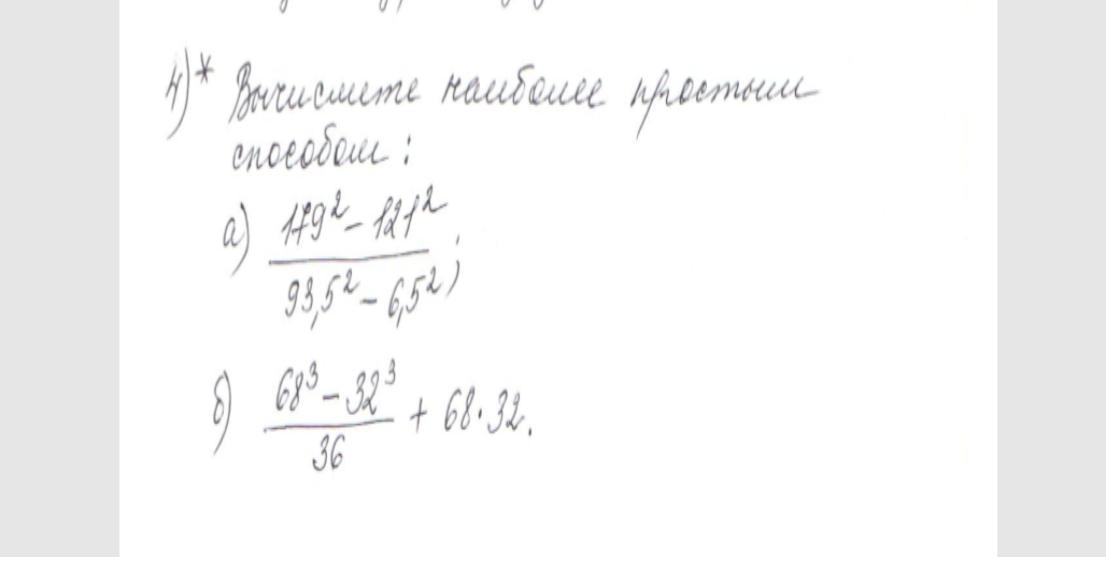 4)* Вычислите наиболее простым
способом:
а) (179² - 121²) / (93,5² - 6,5²);
б) (68³ - 32³) / 36 + 68·32.